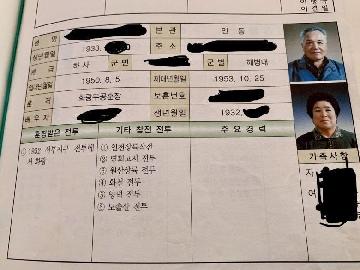 성 명
본 관
안 동
생년월일
1933.
주 소
계 급
하 사
군 번
군 별
해병대
입대년월일
1950. 8. 5
제대년월일
1953. 10. 25
훈 격
화랑무공훈장
보훈번호
배 우 자
생년월일
1932,
훈장받은 전투
기타 참전 전투
주 요 경 력
가족사항
① 1952
전투에
서 화랑
① 인천상륙작전
② 연희고지 전투
③ 원산상륙 전투
④ 화천 전투
⑤ 양덕 전투
⑥ 도솔산 전투
자
여